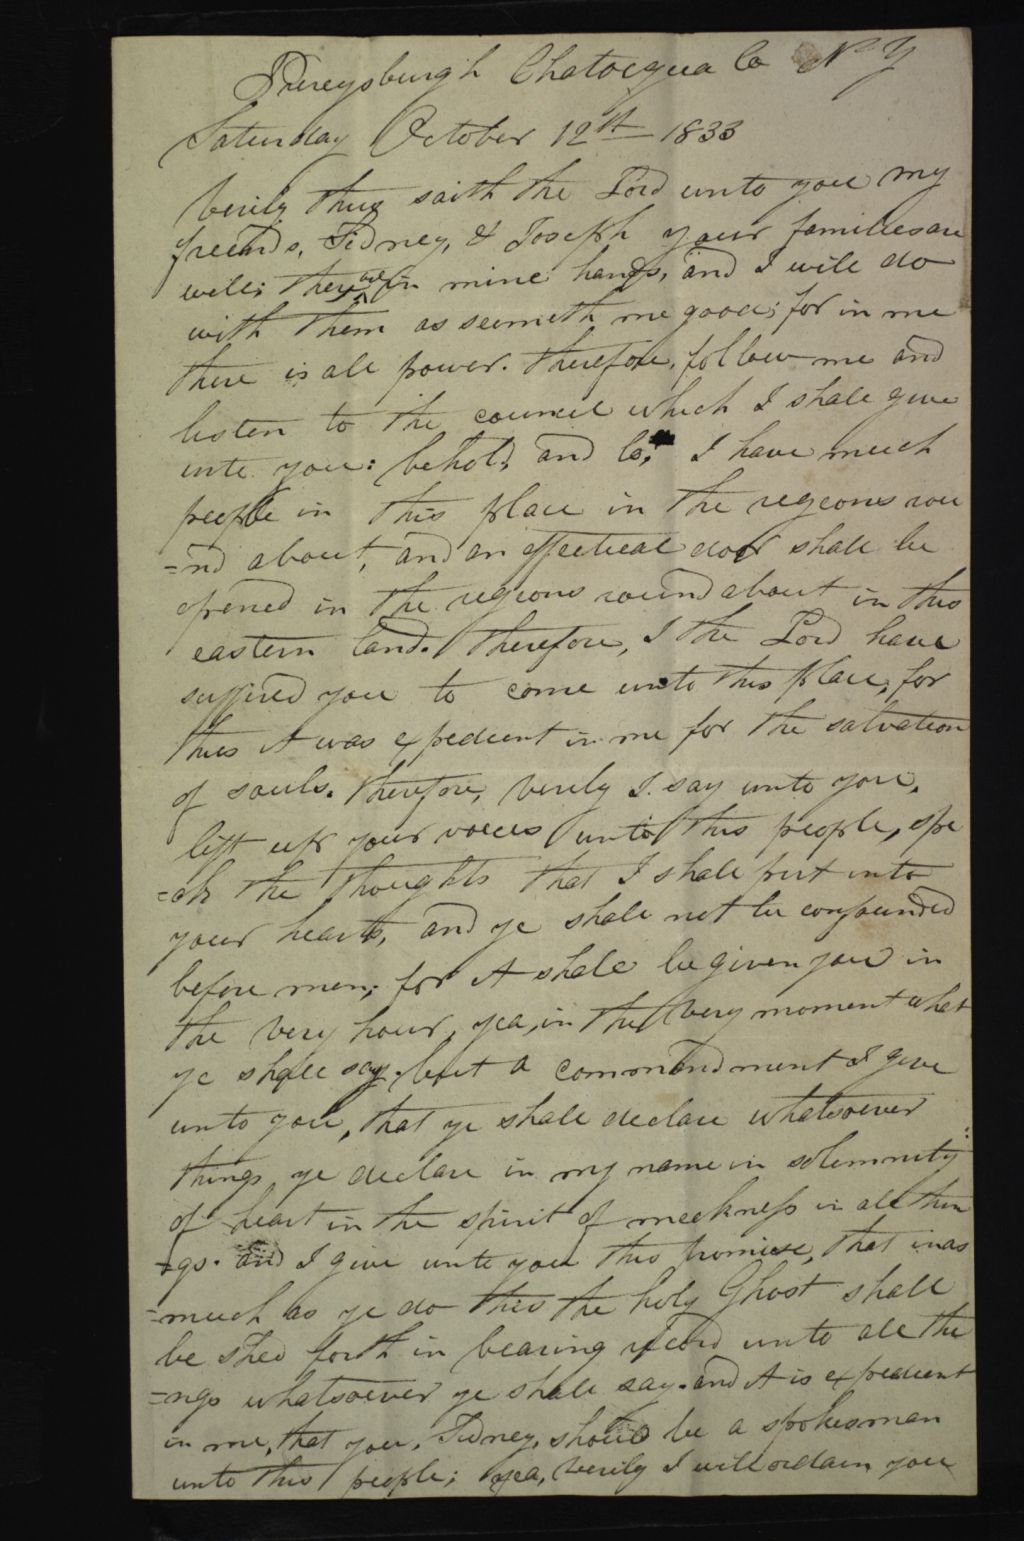 Perrysburgh Chatocqua Co N Y
Saturday October 12th 1833
Verily thus saith the Lord unto you my
freinds, Sidney, & Joseph your families are
well; they are in mine hands, and I will do
with them as seemeth me good; for in me
there is all power. therefore, follow me and
listen to the council which I shall give
unto you: behold, and lo, I have much
people in this place in the regeons rou
=nd about, and an effectual door shall be
opened in the regions round about in this
eastern land. Therefore, I the Lord have
suffired you to come unto this place; for
thus it was expedient in me for the salvation
of souls. Therefore, verily I say unto you,
lift up your voices unto this people, spe
=ak the thoughts that I shall put into
your hearts, and ye shall not be confounded
before men; for it shall be given you in
the very hour, yea, in the very moment what
ye shall say. but a commandment I give
unto you, that ye shall declare whatsoever
things ye declare in my name in solemnity
of heart in the spirit of meekness in all thin
=gs. and I give unto you this promise, that inas
=much as ye do this the holy Ghost shall
be shed forth in bearing record unto all thi
=ngs whatsoever ye shall say. and it is expedient
in me, that you, Sidney, should be a spokesman
unto this people; yea, verily I will ordain you